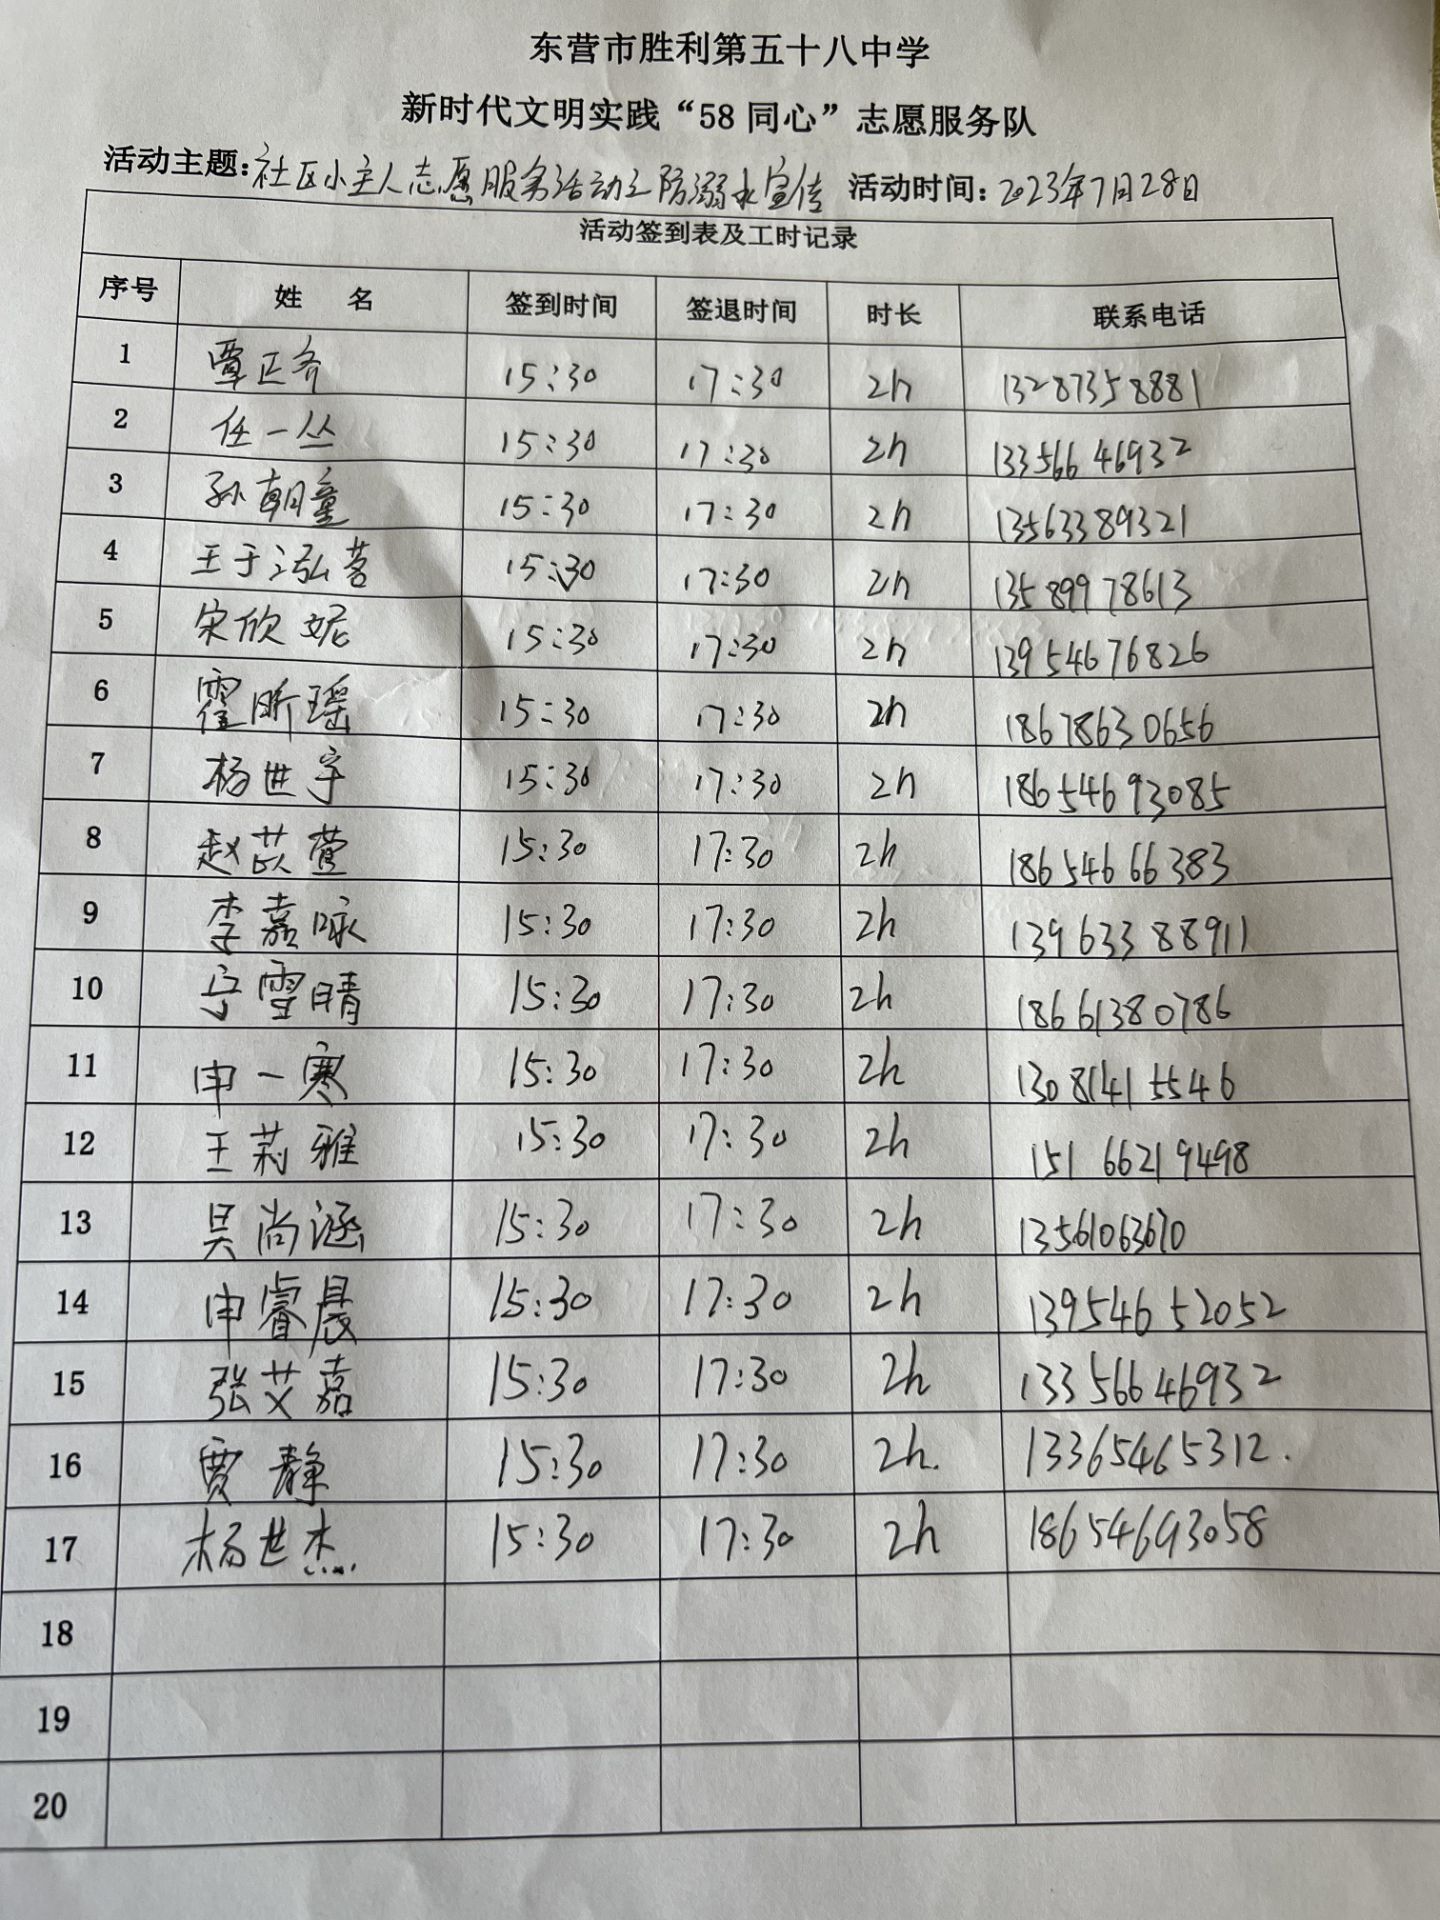 东营市胜利第五十八中学
新时代文明实践“58同心”志愿服务队
活动主题:社区小主人志愿服务活动之防溺水宣传 活动时间:2023年7月28日
活动签到表及工时记录
序号 姓 名 签到时间 签退时间 时长 联系电话
1 覃正齐 15:30 17:30 2h 13287358881
2 任一丛 15:30 17:30 2h 13356646932
3 孙朝童 15:30 17:30 2h 13563389321
4 王于泓茗 15:30 17:30 2h 13589978613
5 宋欣妮 15:30 17:30 2h 13954676826
6 霍昕瑶 15:30 17:30 2h 18678630656
7 杨世宇 15:30 17:30 2h 18654693085
8 赵苡萱 15:30 17:30 2h 18654666383
9 李嘉咏 15:30 17:30 2h 13963388911
10 宁雪晴 15:30 17:30 2h 18661380786
11 申一寒 15:30 17:30 2h 13081415546
12 王莉雅 15:30 17:30 2h 15166219498
13 吴尚涵 15:30 17:30 2h 13561063610
14 申睿晨 15:30 17:30 2h 13954652052
15 张艾嘉 15:30 17:30 2h 13356646932
16 贾静 15:30 17:30 2h. 13365465312.
17 杨世杰 15:30 17:30 2h 18654693058
18
19
20